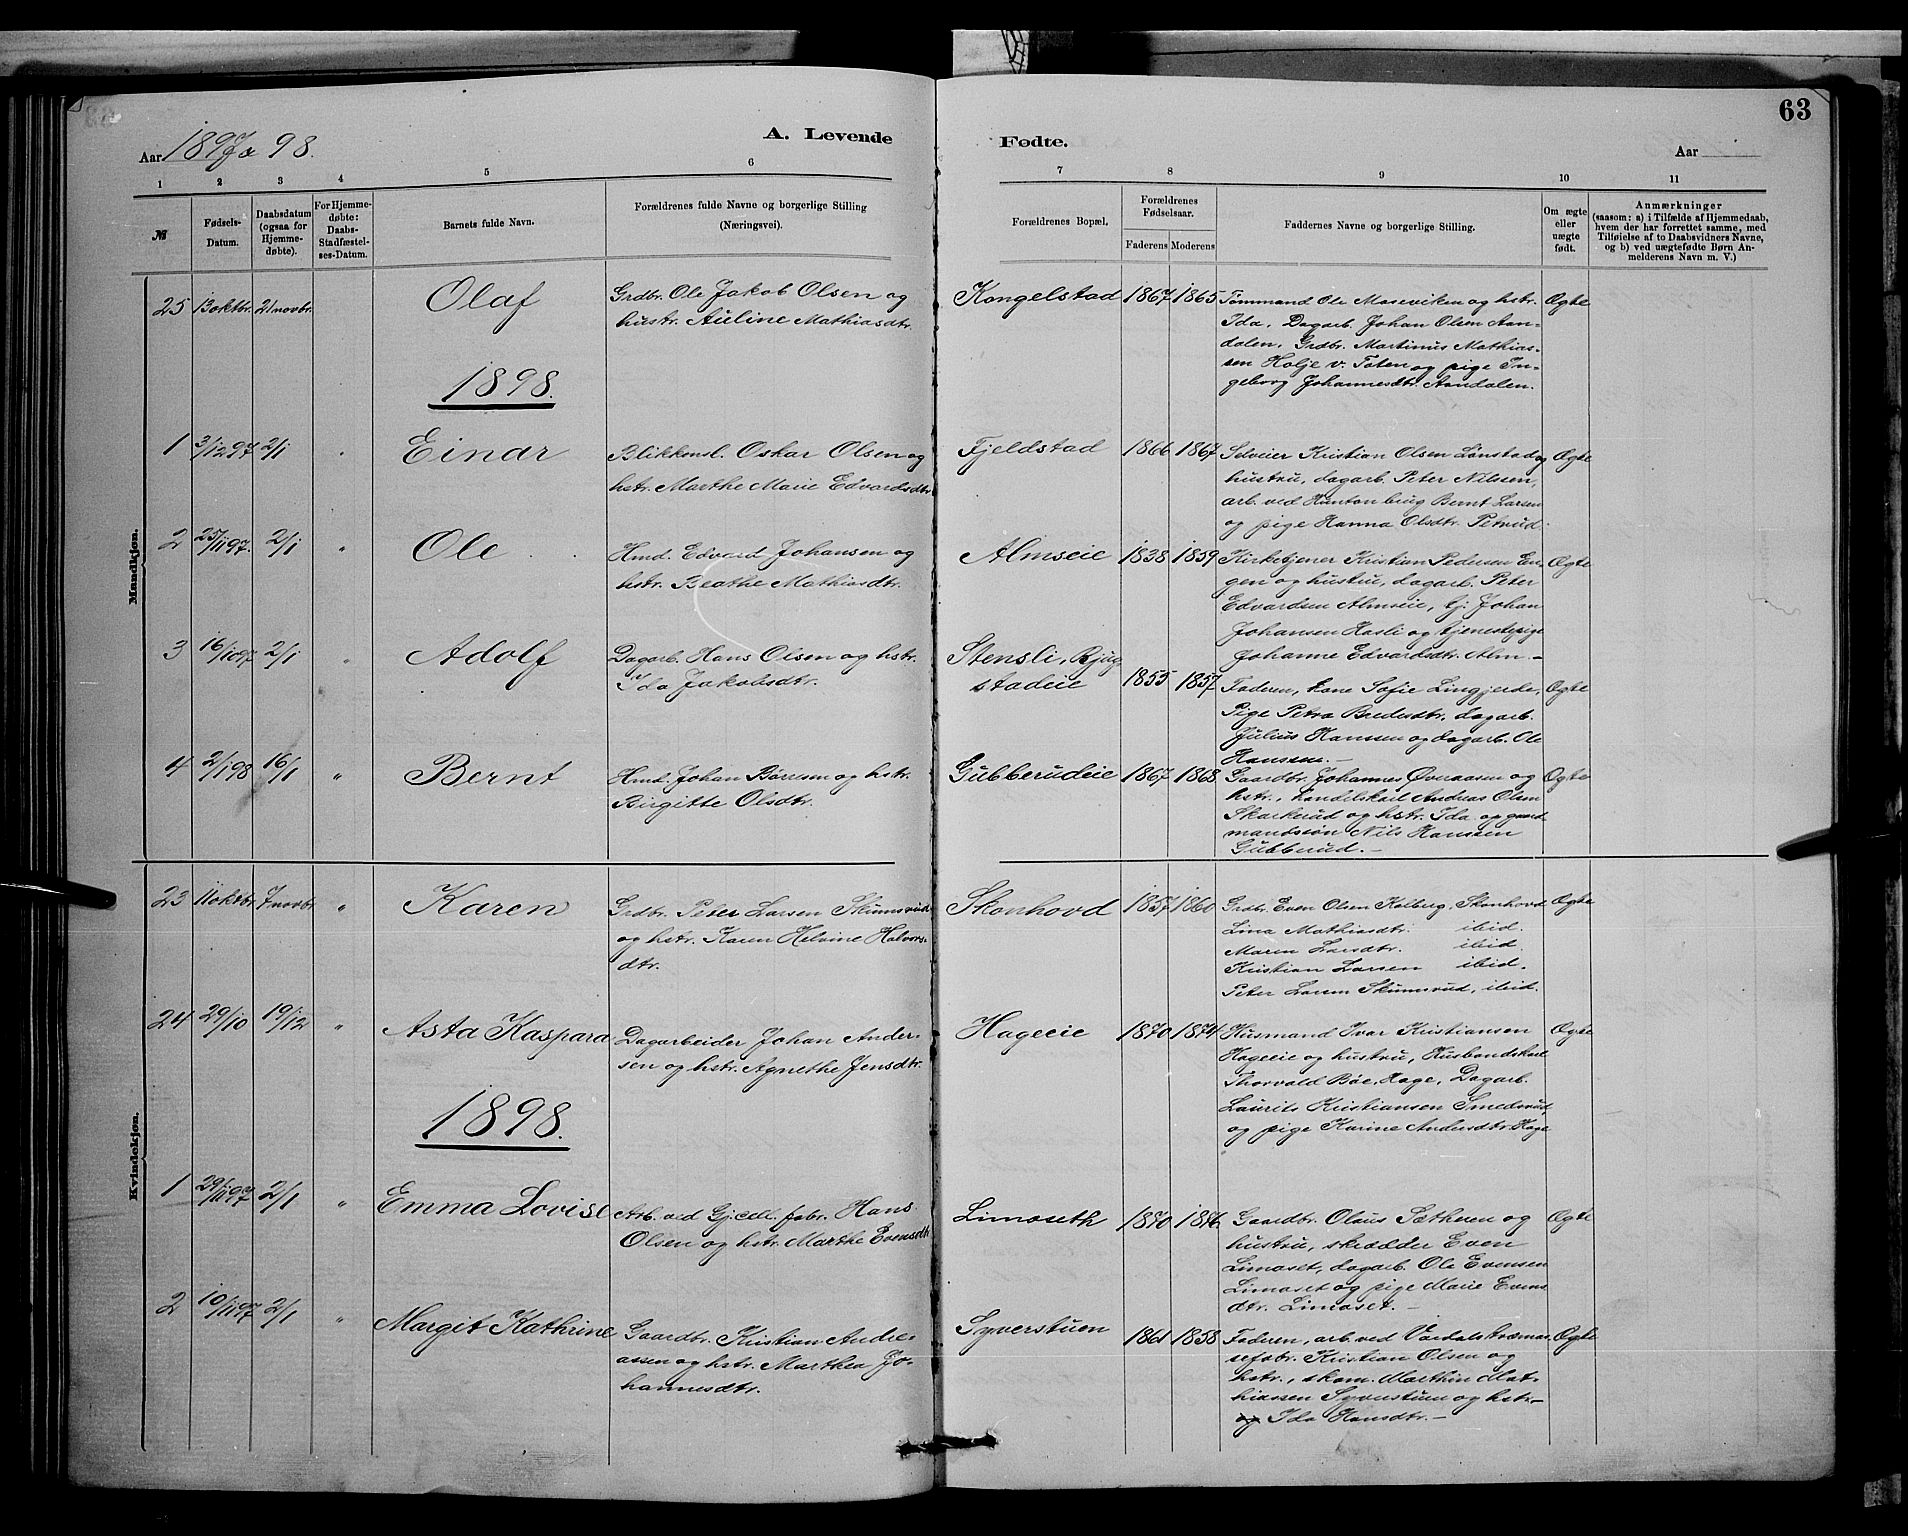 63
Aar 1897 & 98.
A. Levende
Fødte.
Aar
1 2 3 4 5 6
7 8 9 10 11
№
Fødsels-Datum.
Daabsdatum (ogsaa for Hjemmedøbte).
For Hjemmedøbte: Daabs-Stadfæstelses-Datum.
Barnets fulde Navn.
Forældrenes fulde Navne og borgerlige Stilling (Næringsvei).
Forældrenes Bopæl.
Forældrenes Fødselsaar.
Faderens Moderens
Faddernes Navne og borgerlige Stilling.
Om ægte eller uægte født.
Anmærkninger
(saasom: a) i Tilfælde af Hjemmedaab,
hvem der har forrettet samme, med
Tilføielse af to Daabsvidners Navne,
og b) ved uægtefødte Børn An-
melderens Navn m. V.)
Mandkjøn.
25 13 oktbr. 21 novbr. Olaf
Grdbr. Ole Jakob Olsen og
hustr. Auline Mathiasdtr.
Kongelstad 1867 1865
Tømmand Ole Maseviken og hstr.
Ida, Dagarb. Johan Olsen Aan-
dalen, Grdbr. Martinus Mathias-
sen Holje v. Toten og pige In-
geborg Johannesdtr. Aandalen.
Ægte
1898.
1 3/12 97 2/1 Einar
Blikkensl. Oskar Olsen og
hstr. Marthe Marie Edvardsdtr.
Fjeldstad 1866 1867
Selveier Kristian Olsen Lønstad og
hustru, dagarb. Peter Nilsen,
arb. ved Hunton brug Bernt Larsen
og pige Hanna Olsdtr. Petrud.
Ægte
2 25/11 97. 2/1 " Ole
Hmd. Edvard Johansen og
hstr. Beathe Mathiasdtr.
Almseie 1838 1859
Kirketjener Kristian Pedersen En-
gen og hustru, dagarb. Peter
Edvardsen Almseie, tj. Johan
Johansen Hasli og tjenestepige
Johanne Edvardsdtr. Alm.-
Ægte
3 16/10 97 2/1 " Adolf
Dagarb. Hans Olsen og hstr.
Ida Jakobsdtr.
Stensli, Bjug
stadeie 1855 1857
Faderen, kone Sofie Lingjerde,
Pige Petra Bredesdtr, dagarb.
Julius Hanssen og dagarb. Ole
Hanssen.-
Ægte
4 2/1 98 16/1 " Bernt
Hmd. Johan Børresen og hstr.
Birgitte Olsdtr.
Gubberudeie 1867 1868
Gaardbr. Johannes Øveraasen og
hstr., handelskarl Andreas Olsen
Skarkerud og hstr. Ida og gaard
mandssøn Nils Hanssen
Gubberud.-
Ægte
Kvindekjøn.
23 11 oktbr. 7 novbr. " Karen
Grdbr. Peter Larsen Skumsrud
og hstr. Karen Helvine Halvors-
dtr.
Skonhovd 1857 1860
Grdbr. Even Olsen Kolberg, Skonhovd
Lina Mathiasdtr. ibid.
Maren Larsdtr. ibid.
Kristian Larsen ibid.
Peter Larsen Skumsrud, ibid.
Ægte
24 29/10 19/12 " Asta Kaspara
Dagarbeider Johan Ander-
sen og hstr. Agnethe Jensdtr.
Hageeie 1870 1874
Husmand Ivar Kristiansen
Hageeie og hustru, Husbondskarl
Thorvald Bøe, Hage, Dagarb.
Laurits Kristiansen Smedsrud,
og pige Karine Andersdtr. Hage
Ægte
1898.
1 29/11 97 2/1 " Emma Lovise
Arb. ved Gj. cell. fabr. Hans
Olsen og hstr. Marthe Evensdtr
Limoseth 1870 1876
Gaardbr. Olaus Sætheren og
hustru, skrædder Even
Limoset, dagarb. Ole Evensen
Limoset og pige Marie Evens
dtr. Limoset.-
Ægte
2 10/11 97 2/1 " Margit Kathrine
Gaardbr. Kristian Andre-
assen og hstr. Marthea Jo-
hannesdtr.
Syverstuen 1861 1858
Faderen, arb. ved Vardals træmas
sefabr. Kristian Olsen og
hstr., skom. Marthin Mat-
hiassen Syverstuen og hstr.-
og Ida Hansdtr.-
Ægte